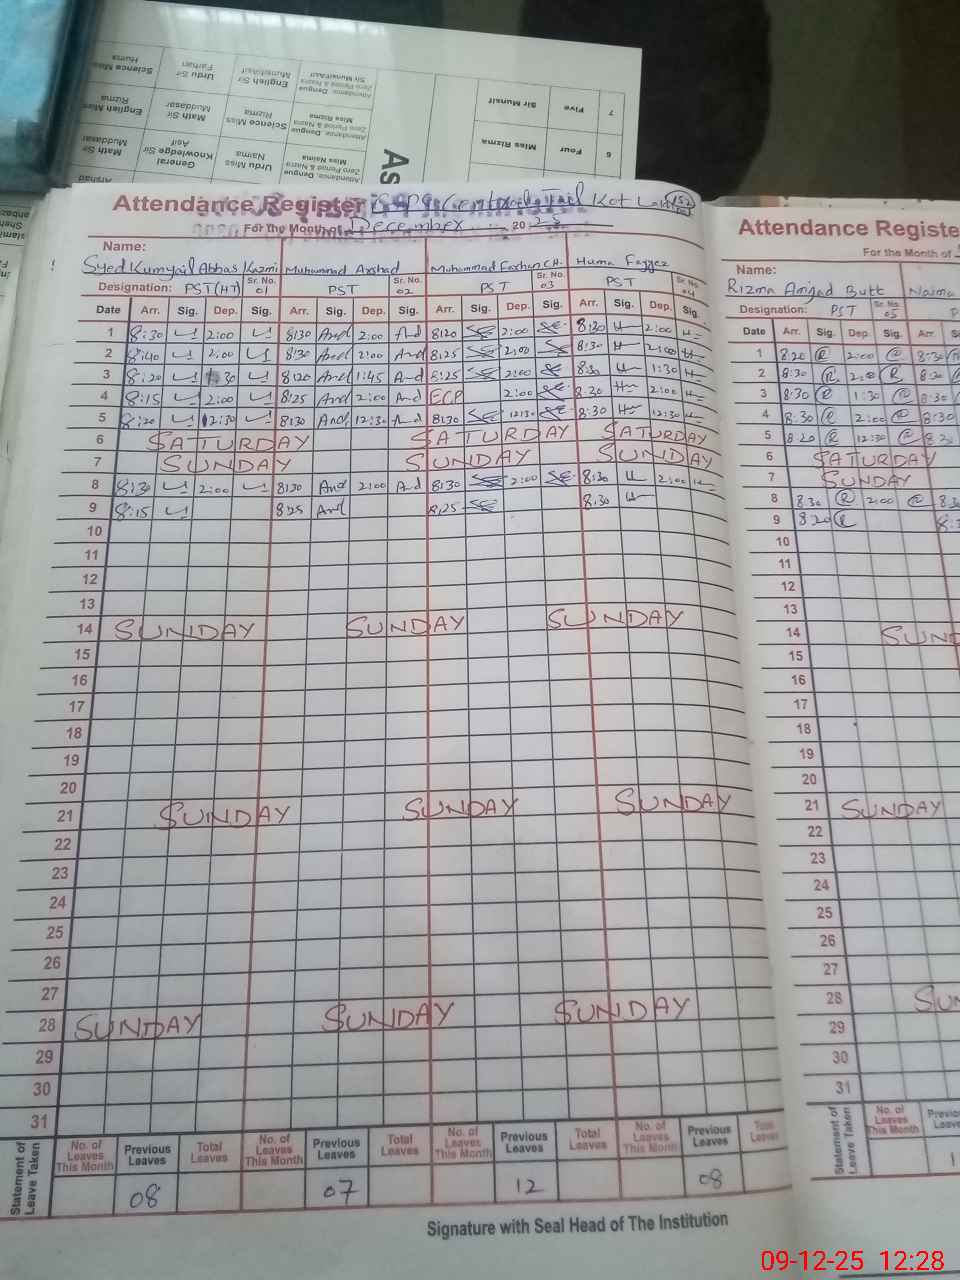 Science Miss Huma
Urdu Sir Farhan
English Sir Munsif/Asif
Attendance, Dengue, Zero Period & Nazra Sir Munsif/Asif
English Miss Rizma
Math Sir Muddasar
Science Miss Rizma
Attendance, Dengue, Zero Period & Nazra Miss Rizma
Math Sir Muddasar
General Knowledge Sir Asif
Urdu Miss Naima
Attendance, Dengue, Zero Period & Nazra Miss Naima
Sir Munsif Five 7
Miss Rizma Four 6
As
Attendance Register GPS Central Jail Kot Lakhpat
For the Month of December 2025
Name:
Syed Kumyail Abbas Kazmi Muhammad Arshad Muhammad Farhan CH. Huma Fayyez
Designation: PST(HT) Sr. No. 01 PST Sr. No. 02 PST Sr. No. 03 PST Sr. No. 04
Date Arr. Sig. Dep. Sig. Arr. Sig. Dep. Sig. Arr. Sig. Dep. Sig. Arr. Sig. Dep. Sig.
1 8:30 2:00 8:30 2:00 8:20 2:00 8:20 2:00
2 8:40 2:00 8:30 2:00 8:25 2:00 8:30 2:00
3 8:20 1:30 8:20 1:45 8:25 2:00 8:30 1:30
4 8:15 2:00 8:25 2:00 2:00 8:30 2:00
5 8:20 12:30 8:30 12:30 8:30 12:30 8:30 12:30
6 SATURDAY SATURDAY SATURDAY
7 SUNDAY SUNDAY SUNDAY
8 8:30 2:00 8:30 2:00 8:30 2:00 8:30 2:00
9 8:15 8:25 8:25 8:30
10
11
12
13
14 SUNDAY SUNDAY SUNDAY
15
16
17
18
19
20
21 SUNDAY SUNDAY SUNDAY
22
23
24
25
26
27
28 SUNDAY SUNDAY SUNDAY
29
30
31
Statement of Leave Taken
No. of Leaves This Month Previous Leaves Total Leaves No. of Leaves This Month Previous Leaves Total Leaves No. of Leaves This Month Previous Leaves Total Leaves No. of Leaves This Month Previous Leaves Total Leaves
08 07 12 08
Signature with Seal Head of The Institution
Attendance Registe
For the Month of
Name:
Rizma Amjad Butt Naima
Designation: PST Sr. No. 05
Date Arr. Sig. Dep. Sig. Arr.
1 8:20 2:00 8:30
2 8:30 2:00 8:30
3 8:30 1:30 8:30
4 8:30 2:00 8:30
5 8:20 12:30 8:20
6 SATURDAY
7 SUNDAY
8 8:30 2:00
9 8:20
10
11
12
13
14 SUND
15
16
17
18
19
20
21 SUNDAY
22
23
24
25
26
27
28 SUN
29
30
31
Statement of Leave Taken
No. of Leaves This Month
09-12-25 12:28